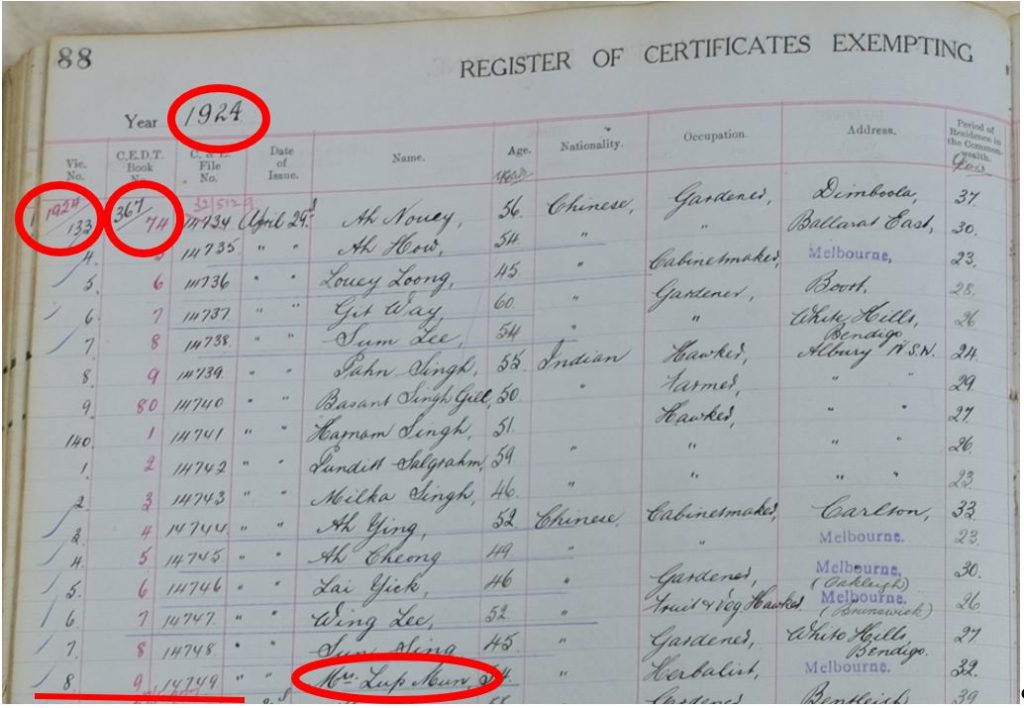 88
REGISTER OF CERTIFICATES EXEMPTING
Year 1924
Vic. No. C.E.D.T. Book No. C. & E. File No. Date of Issue. Name. Age. Nationality. Occupation. Address. Period of Residence in the Commonwealth.
years
1924 367 32/5129
133 74 14734 April 29 Ah Nouey, 56. Chinese, Gardener, Dimboola, 37.
4. 5 14735 " " Ah How, 54 " " Ballarat East, 30.
5. 6 14736 " " Louey Loong, 45 " Cabinetmaker, Melbourne, 23.
6. 7 14737 " " Git Way, 60 " Gardener, Boort. 28.
7 8 14738. " " Sum Lee, 54 " " White Hills, Bendigo 26
8. 9 14739. " " Pahn Singh, 55 Indian Hawker, Albury N.S.W. 24.
9. 80 14740 " " Basant Singh Gill, 50. " Farmer, " " 29.
140. 1 14741 " " Harnam Singh, 51. Hawker, " " 27.
1. 2 14742 " " Punditt 59 " " " " 26.
2. 3 14743 " " Milka Singh, 46. " " " " 23
3. 4 14744. " " Ah Ying, 52 Chinese, Cabinetmaker, Carlton, 33.
4. 5 14745. " " Ah Cheong 49 " " Melbourne. 23.
5. 6 14746 " " Lai Yick, 46 " Gardener, Melbourne, (Oakleigh) 30.
6. 7 14747. " " Wing Lee, 52. " Fruit & Veg Hawker. Melbourne. (Brunswick) 26
7. 8 14748 " " Sun Sing 45 " Gardener, White Hills, Bendigo. 27
8. 9 14749 " " Mrs. Lup Mun, 54. " Herbalist, Melbourne. 32.
Gardener Bentleigh 39